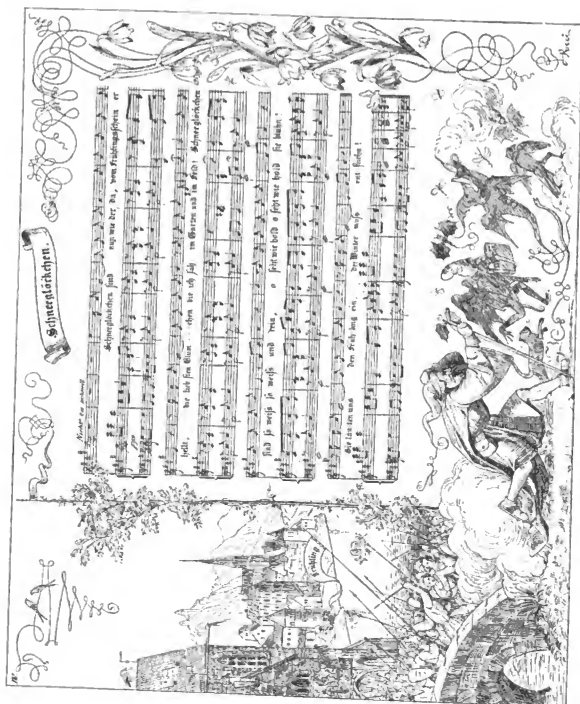 Schneeglöckchen.
Schneeglöckchen sind nun wie der da, vom Frühlingsschein er
hellt, die lieb sten Blüm chen die ich sah im Garten und im Feld! Schneeglöckchen
sind so weiss so weiss und rein, o seht wie hold o seht wie hold sie blühn!
Sie läu ten uns den Früh ling ein, der Winter muss ent fliehn!
Frühling